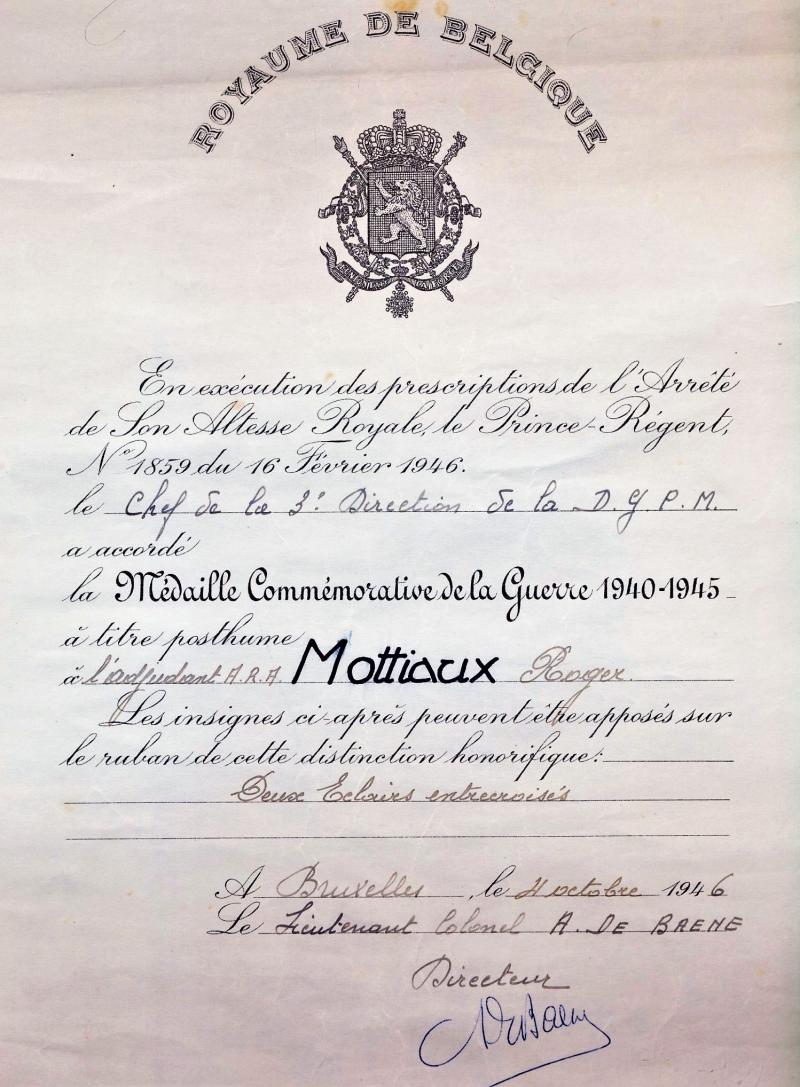 ROYAUME DE BELGIQUE
L'UNION FAIT LA FORCE
En exécution des prescriptions de l'Arrêté
de Son Altesse Royale, le Prince-Régent,
N° 1859 du 16 Février 1946.
le Chef de la 3e Direction de la D.G.P.M.
a accordé
la Médaille Commémorative de la Guerre 1940-1945
à titre posthume
à l'adjudant A.R.A. Mottiaux Roger.
Les insignes ci-après peuvent être apposés sur
le ruban de cette distinction honorifique:
Deux Eclairs entrecroisés
A Bruxelles, le 4 octobre 1946
Le Lieutenant Colonel A. DE BAENE
Directeur
DeBaene